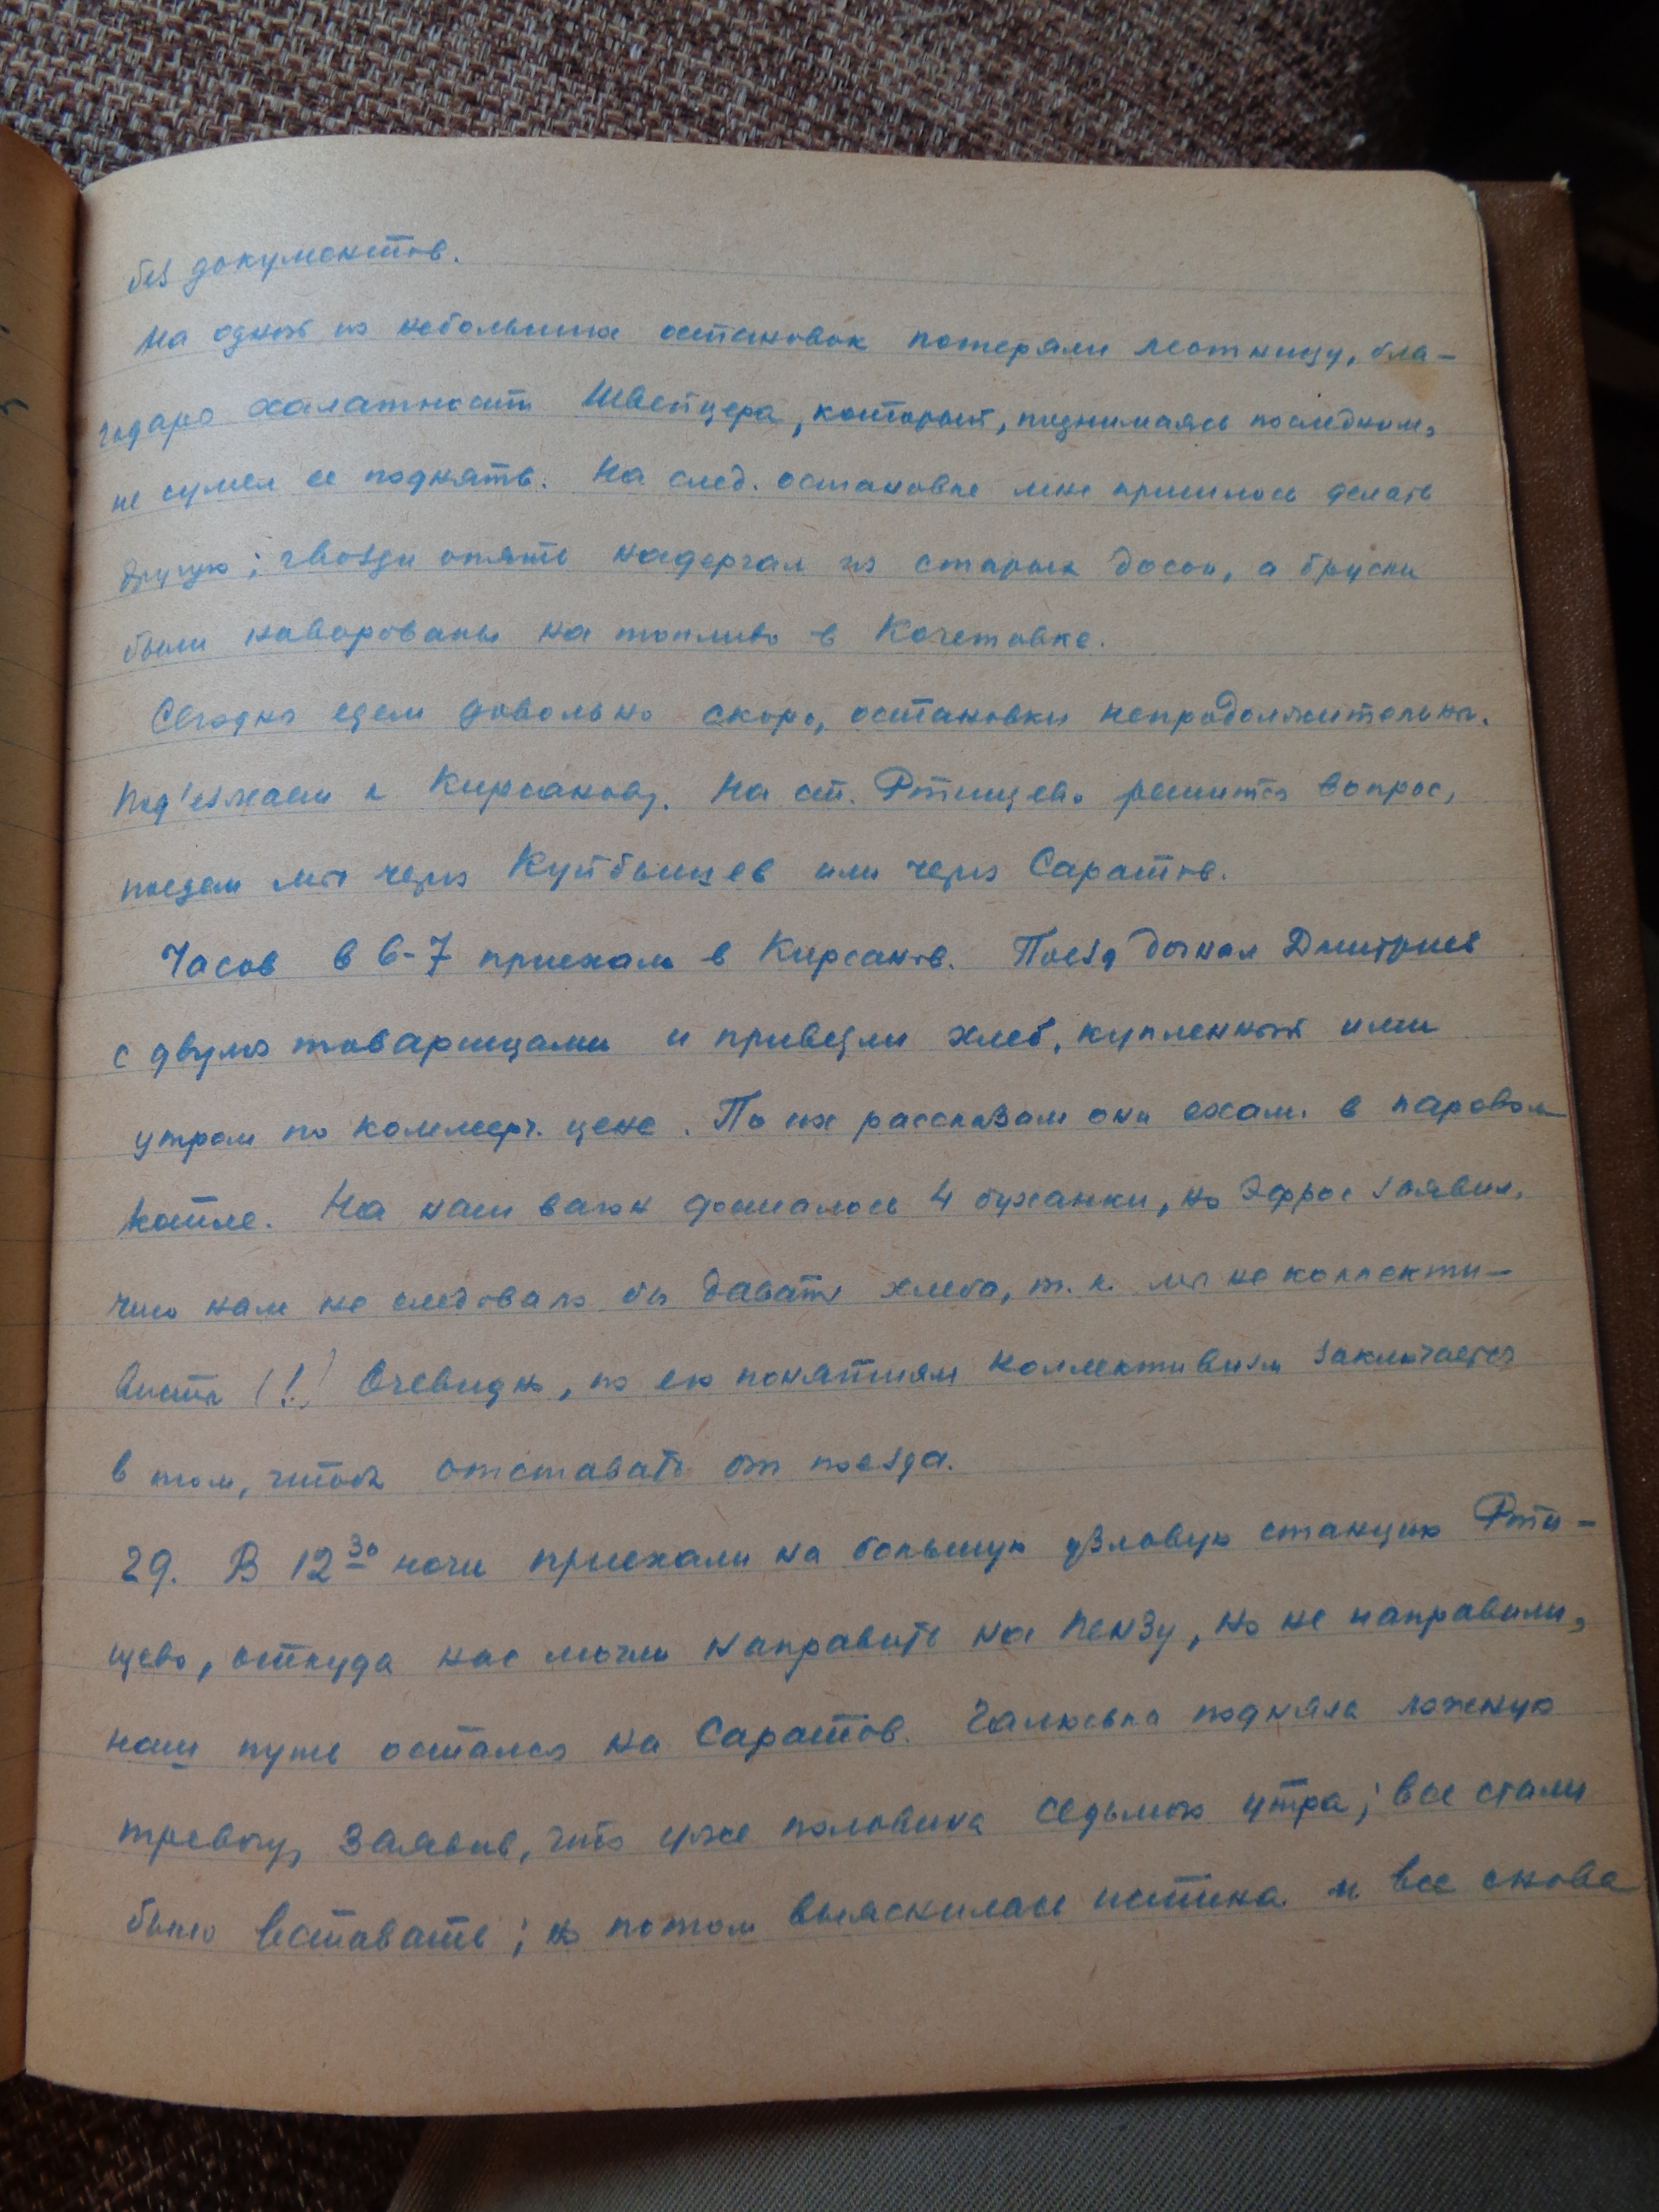 без документов.
На одной из небольших остановок потеряли лестницу, бла-
годаря халатности Швейцера, который, поднимаясь последним,
не сумел ее поднять. На след. остановке мне пришлось делать
другую; гвозди опять надергал из старых досок, а бруски
были наворованы на топливо в Кочетовке.
Сегодня едем довольно скоро, остановки непродолжительны.
Под'езжаем к Кирсанову. На ст. Ртищево решится вопрос,
поедем мы через Куйбышев или через Саратов.
Часов в 6-7 приехали в Кирсанов. Поезд догнал Дмитриев
с двумя товарищами и привезли хлеб, купленный ими
утром по коммерч. цене. По их рассказам они ехали в паровом
котле. На наш вагон досталось 4 буханки, но Эфрос заявил,
что нам не следовало бы давать хлеба, т.к. мы не коллекти-
висты (!) Очевидно, по его понятиям коллективизм заключается
в том, чтобы отставать от поезда.
29. В 12 30 ночи приехали на большую узловую станцию Рти-
щево, откуда нас могли направить на Пензу, но не направили,
наш путь остался на Саратов. подняла ложную
тревогу, заявив, что уже половина седьмого утра; все стали
было вставать; но потом выяснилась истина и все снова